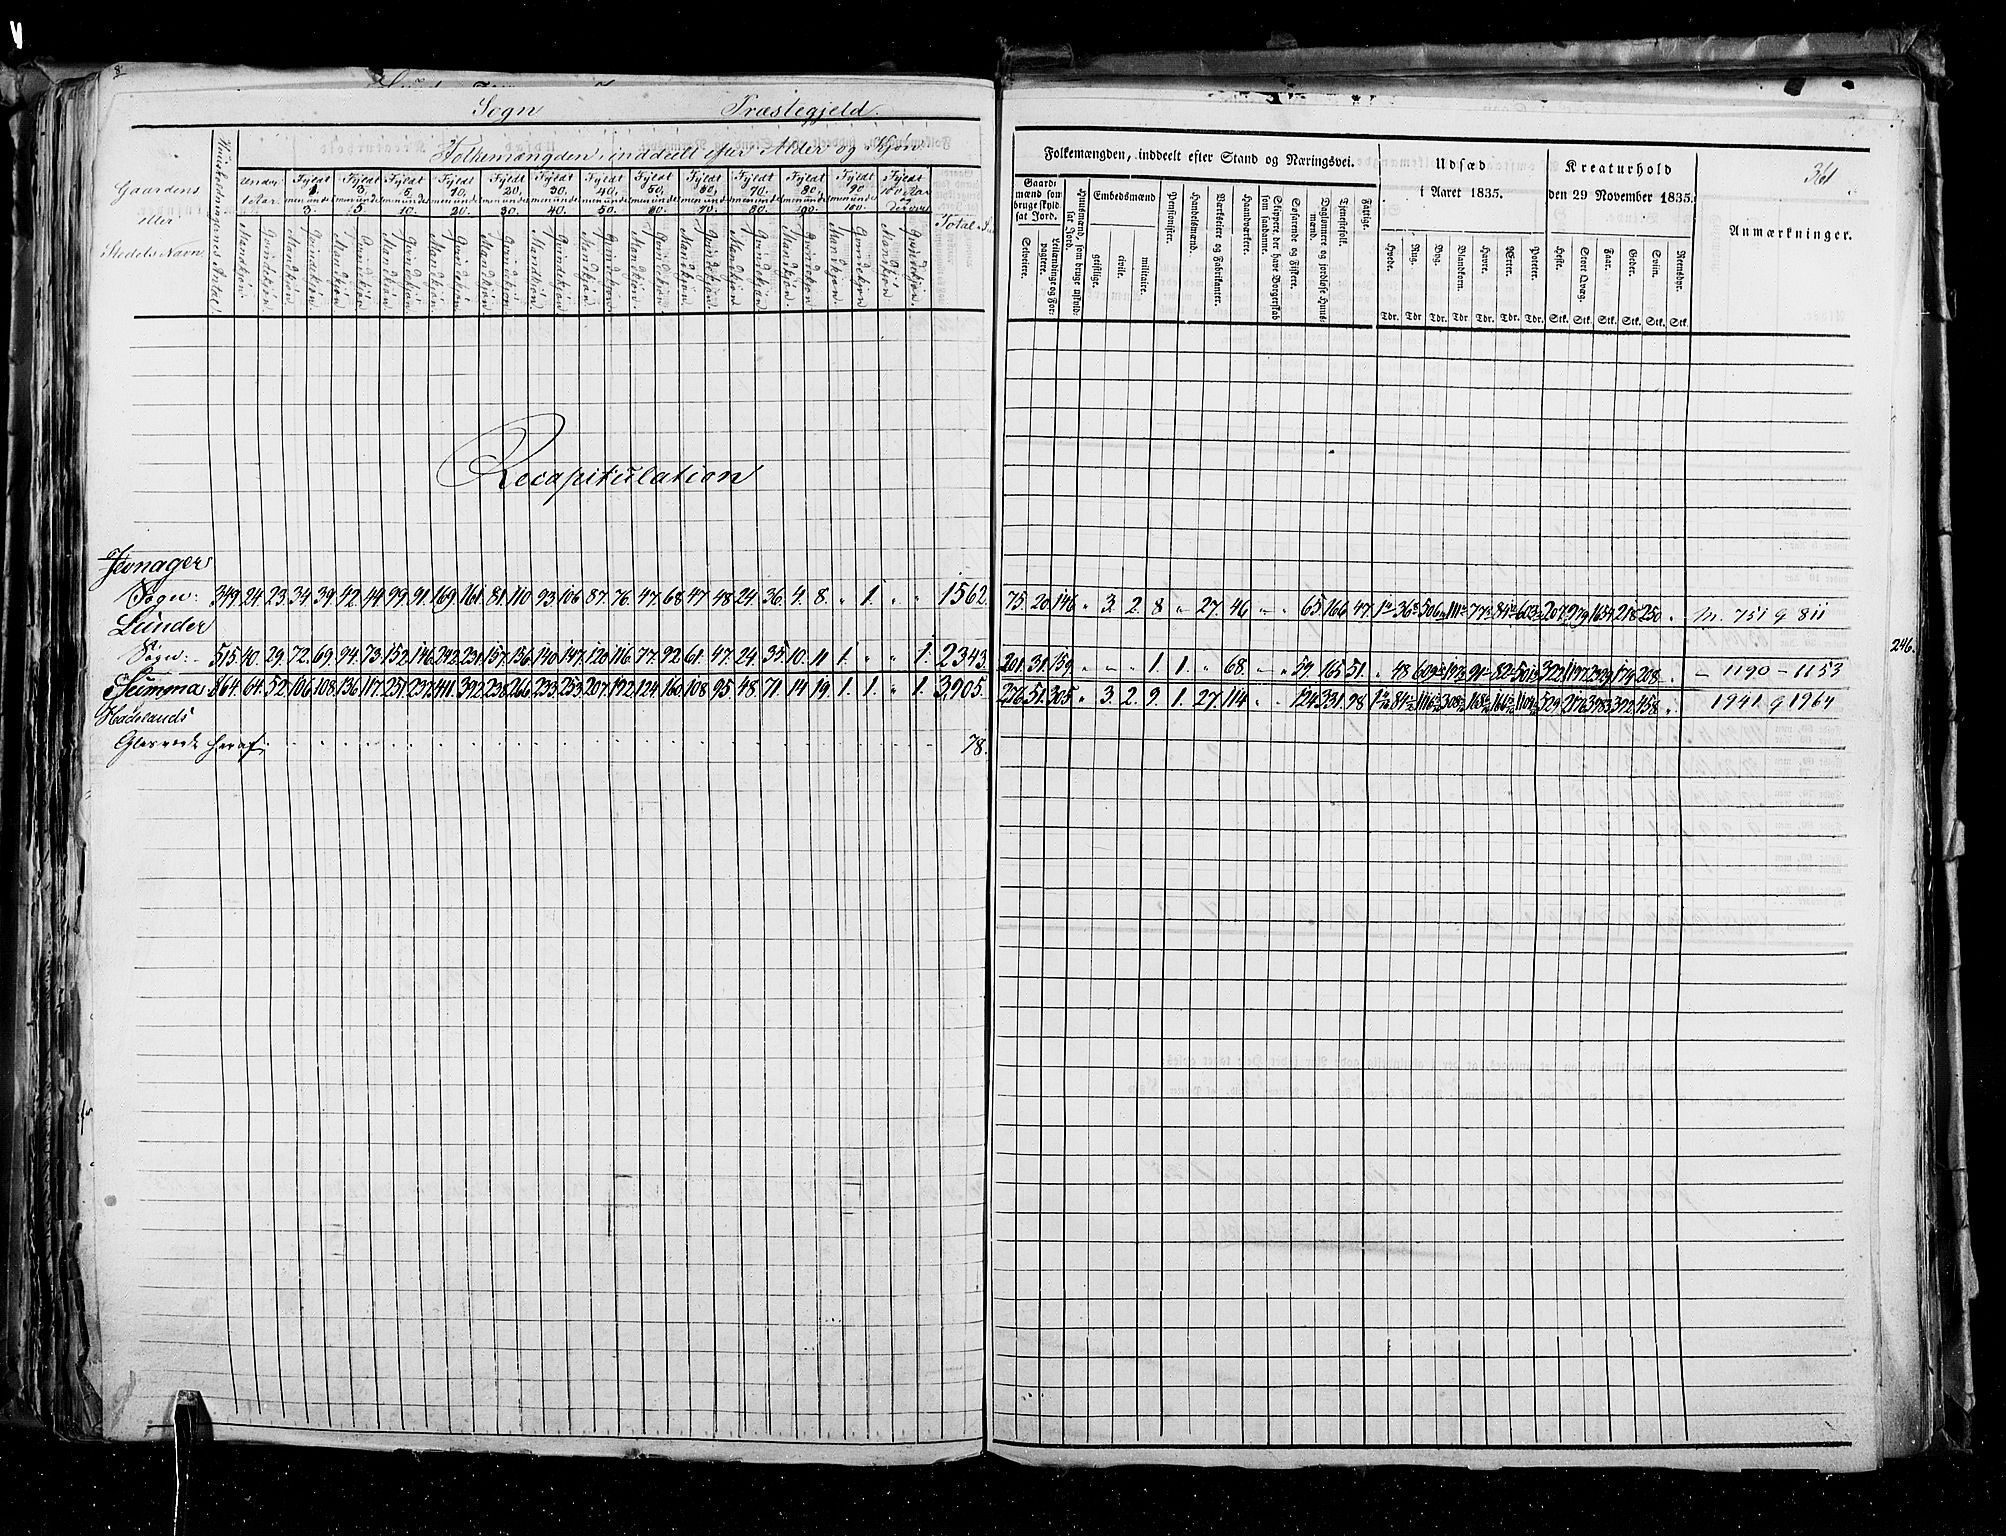 Sogn Præstegjeld.
Folkemængden, inddeelt efter Alder og Kjøn.
Gaardens
eller
Stedets Navn.
Huusholdningens Antal.
under 1 Aar.
Fyldt 1. men under 3.
Fyldt 3. men under 5.
Fyldt 5. men under 10.
Fyldt 10. men under 20.
Fyldt 20. men under 30.
Fyldt 30. men under 40.
Fyldt 40. men under 50.
Fyldt 50. men under 60.
Fyldt
Fyldt 70. men under 80.
Fyldt
Fyldt 90 men under 100.
Fyldt 100 Aar og derover
Mandkjøn. Qvindekjøn.
Total
Recapitulation
Jevnager
Sogn. 349. 24. 23. 34. 39. 42. 44. 99. 91. 169. 161. 81. 110. 93. 106. 87. 76. 47. 68. 47. 48. 24. 36. 4. 8. „ 1. „ „ 1562.
Lunder
Sogn. 515. 40. 29. 72. 69. 94. 73. 152. 146. 242. 231. 157. 156. 140. 147. 120. 116. 77. 92. 61. 47. 24. 35. 10. 11. 1. „ „ 1. 2343.
Summa 864. 64. 52. 106. 108. 136. 117. 251. 237. 411. 392. 238. 266. 233. 253. 207. 192. 124. 160. 108. 95. 48. 71. 14. 19. 1. 1. „ 1. 3905.
Hadelands
Glasværk heraf 78.
361
Folkemængden, inddeelt efter Stand og Næringsvei.
Udsæd
i Aaret 1835.
Kreaturhold
den 29 November 1835.
Anmærkninger.
Gaardmænd som bruge skyldsat Jord.
Selveiere.
Leilændinge og Forpagtere.
Huusmænd, som bruge uskyldsat Jord.
Embedsmænd
geistlige.
civile.
militaire.
Pensionister.
Handelsmænd.
Værkseiere og Fabrikanter.
Haandværkere.
Skippere der have Borgerskab som saadanne.
Søfarende og Fiskere.
Daglønnere og jordløse Huusmænd.
Tjenestefolk.
Fattige.
Hvede. Rug. Byg. Blandkorn. Havre. Erter. Poteter.
Heste. Stort Qvæg. Faar. Geder. Sviin. Reensdyr.
Tdr. Tdr. Tdr. Tdr. Tdr. Tdr. Tdr. Stk. Stk. Stk. Stk. Stk. Stk.
75. 20. 146 „ 3. 2. 8 „ 27. 46 „ „ 65. 166. 47. 207. 979. 1654. 218. 250. „ M. 751 Q 811
201. 31. 159. „ „ „ 1. 1. „ 68. „ „ 59. 165. 51. „ 48 322. 1197. 2329. 174. 208. „ – 1190 – 1153
276. 51. 305 „ 3. 2. 9. 1. 27. 114 „ „ 124. 331. 98. 529. 2176. 3983. 392. 458. „ 1941 Q 1964
246.